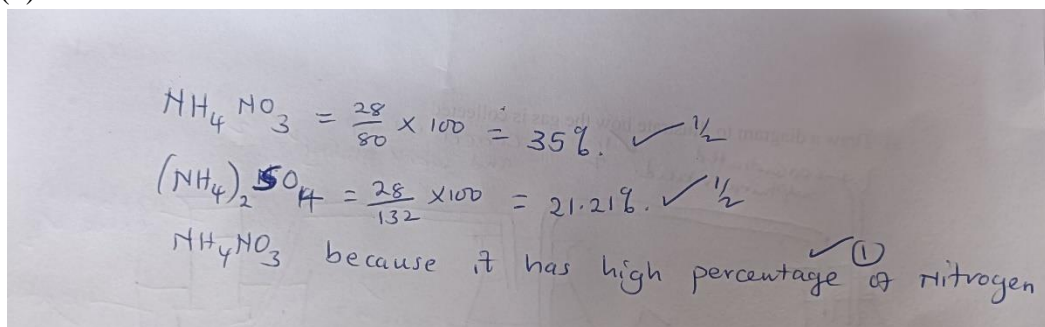 NH₄ NO₃ = 28/80 × 100 = 35%. ✓ ½
(NH₄)₂ SO₄ = 28/132 × 100 = 21.21%. ✓ ½
NH₄NO₃ because it has high percentage of Nitrogen ✓ ①